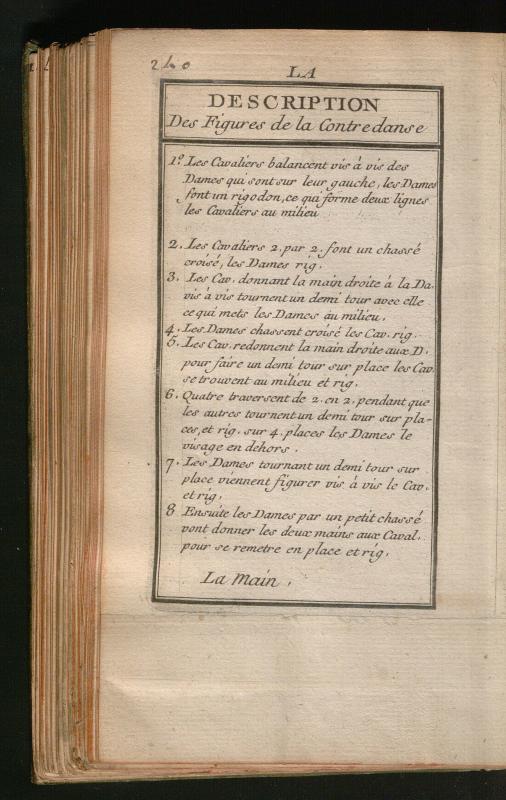 240
LA
DESCRIPTION
Des Figures de la Contredanse
1.º Les Cavaliers balancent vis à vis des
Dames qui sont sur leur gauche, les Dames
font un rigodon, ce qui forme deux lignes
les Cavaliers au milieu
2. Les Cavaliers 2. par 2. font un chassé
croisé, les Dames rig.
3. Les Cav. donnant la main droite à la Da.
vis à vis tournent un demi tour avec elle
ce qui mets les Dames au milieu.
4. Les Dames chassent croisé les Cav. rig.
5. Les Cav. redonnent la main droite aux D.
pour faire un demi tour sur place les Cav.
se trouvent au milieu et rig.
6. Quatre traversent de 2. en 2. pendant que
les autres tournent un demi tour sur pla-
ces, et rig. sur 4. places les Dames le
visage en dehors.
7. Les Dames tournant un demi tour sur
place viennent figurer vis à vis le Cav.
et rig.
8. Ensuite les Dames par un petit chassé
vont donner les deux mains aux Caval.
pour se remetre en place et rig.
La Main.